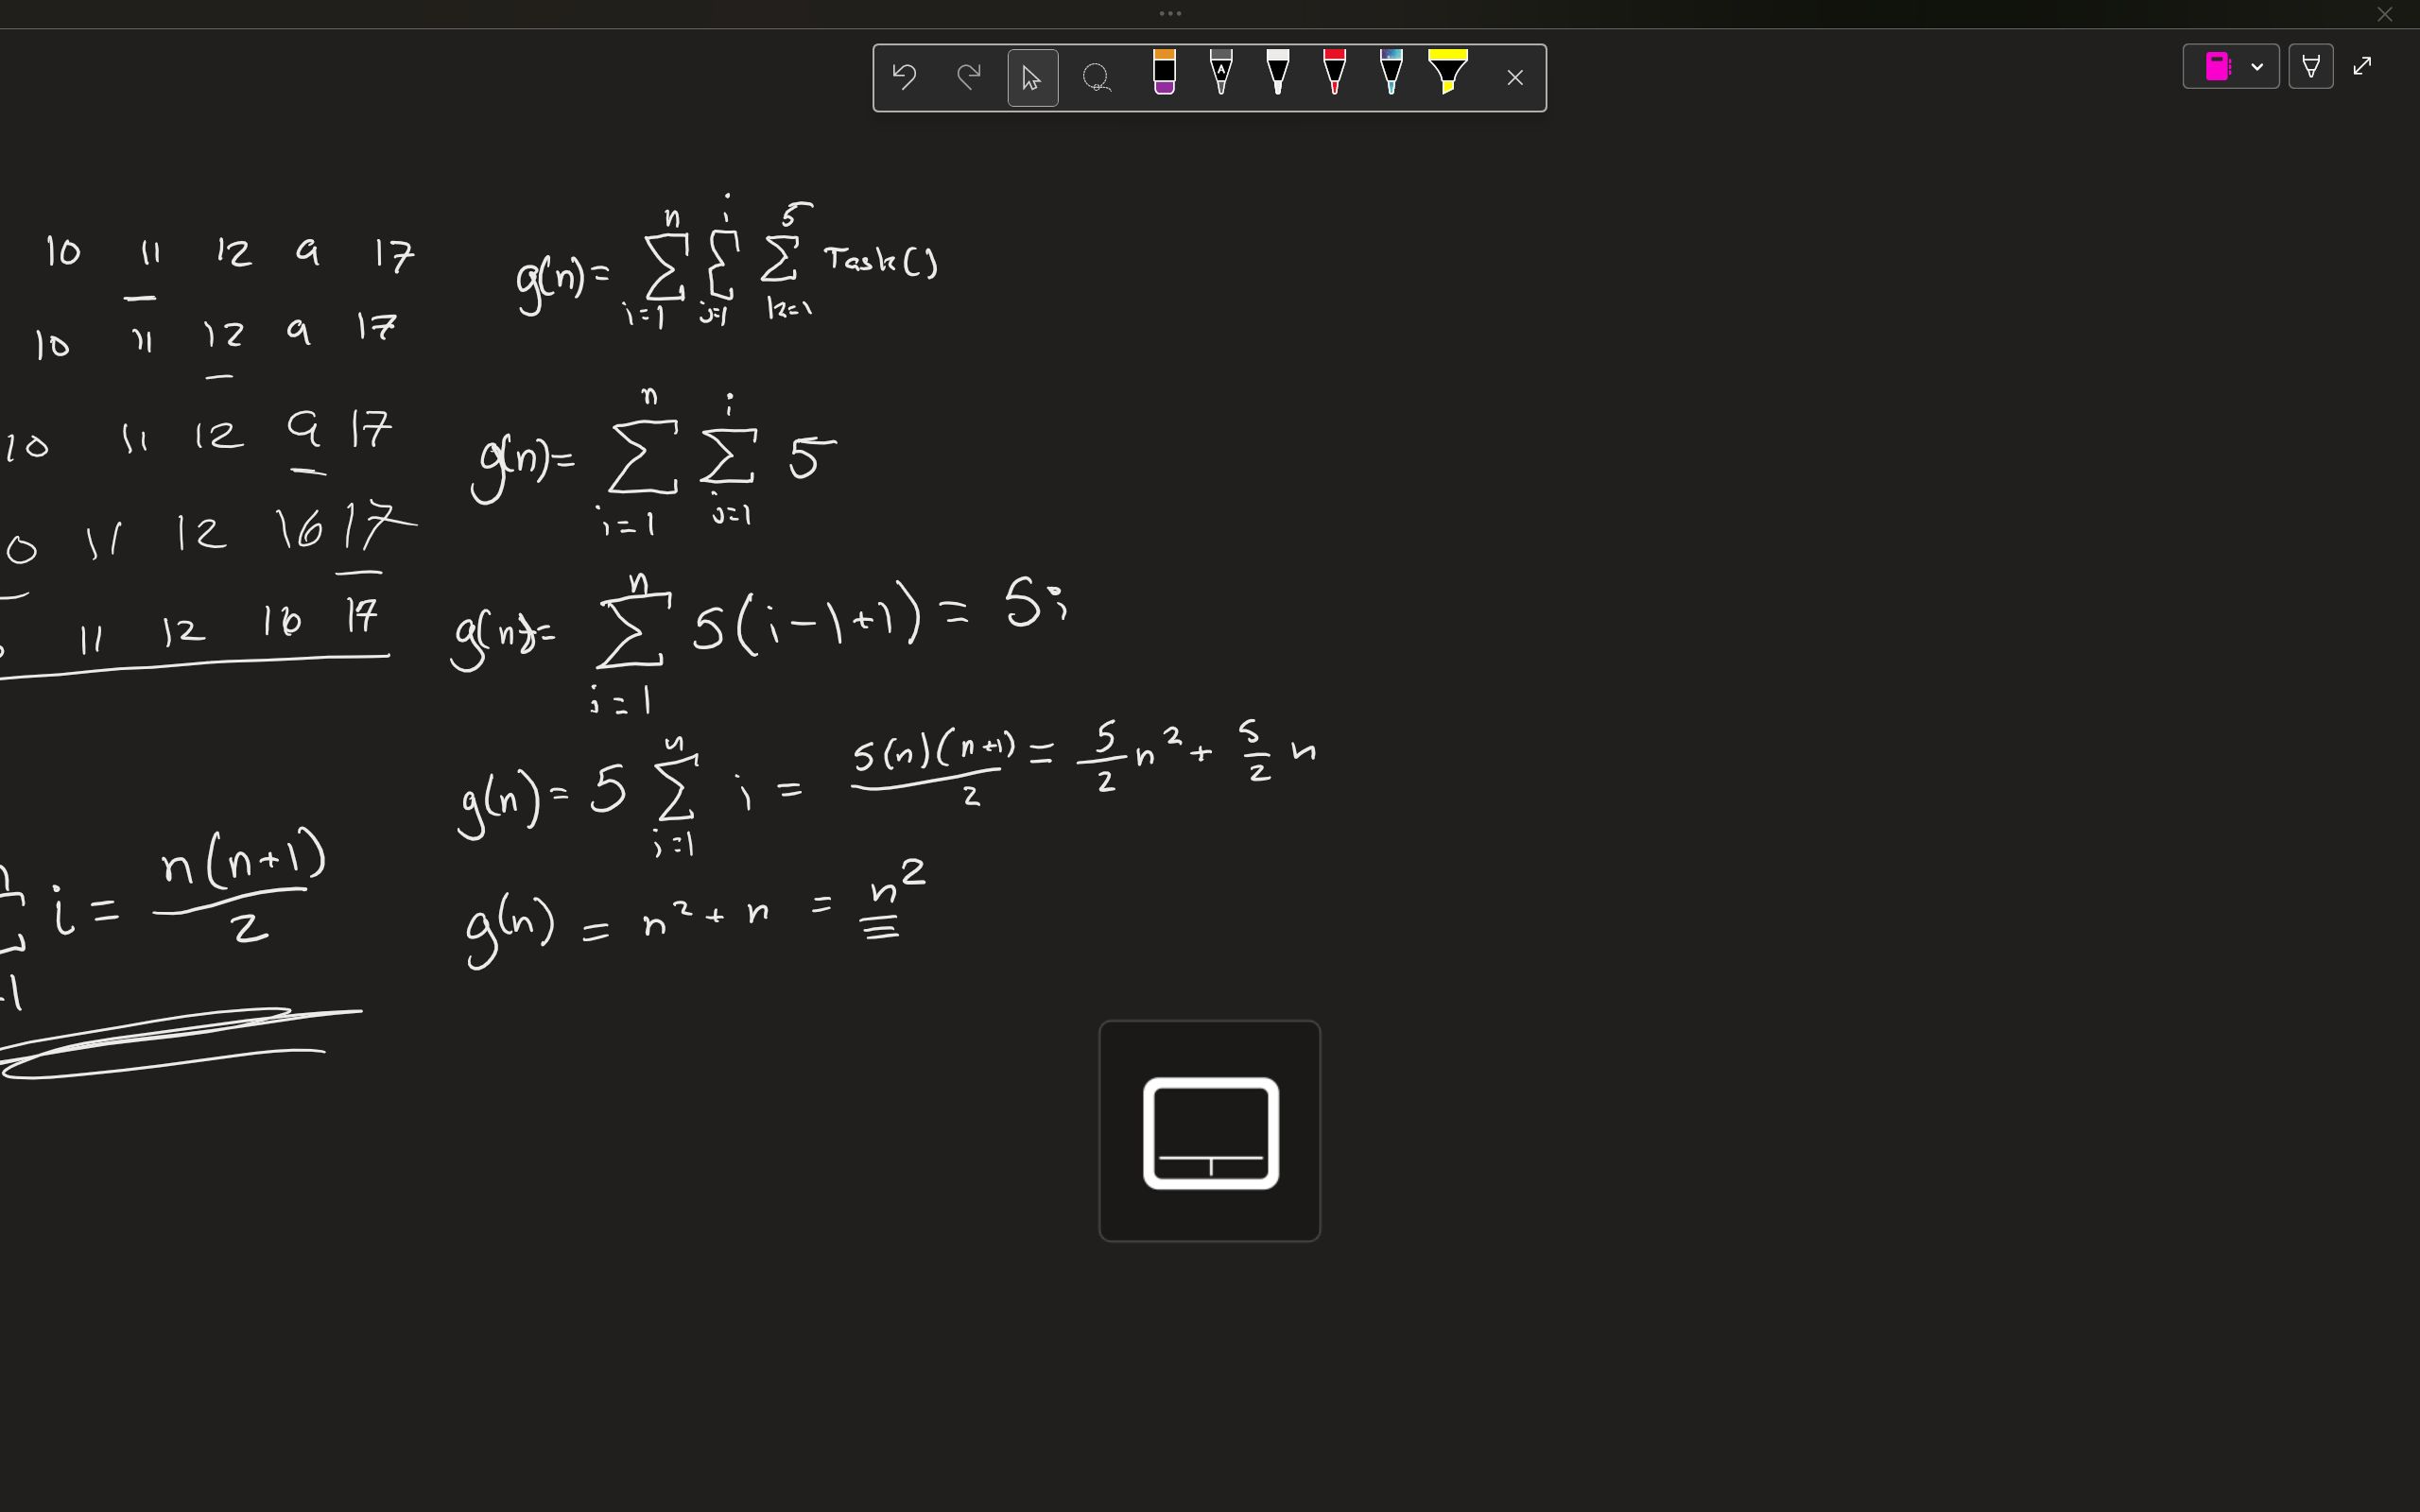 10 11 12 9 17
10 11 12 9 17
10 11 12 9 17
0 11 12 16 17
11 12 16 17
n
∑ i = n(n+1)/2
1
g(n) = ∑_{i=1}^{n} ∑_{j=1}^{i} ∑_{k=1}^{5} Task()
g(n) = ∑_{i=1}^{n} ∑_{j=1}^{i} 5
g(n) = ∑_{i=1}^{n} 5(i-1+1) = 5i
g(n) = 5 ∑_{i=1}^{n} i = 5(n)(n+1)/2 = 5/2 n² + 5/2 n
g(n) = n² + n = n²